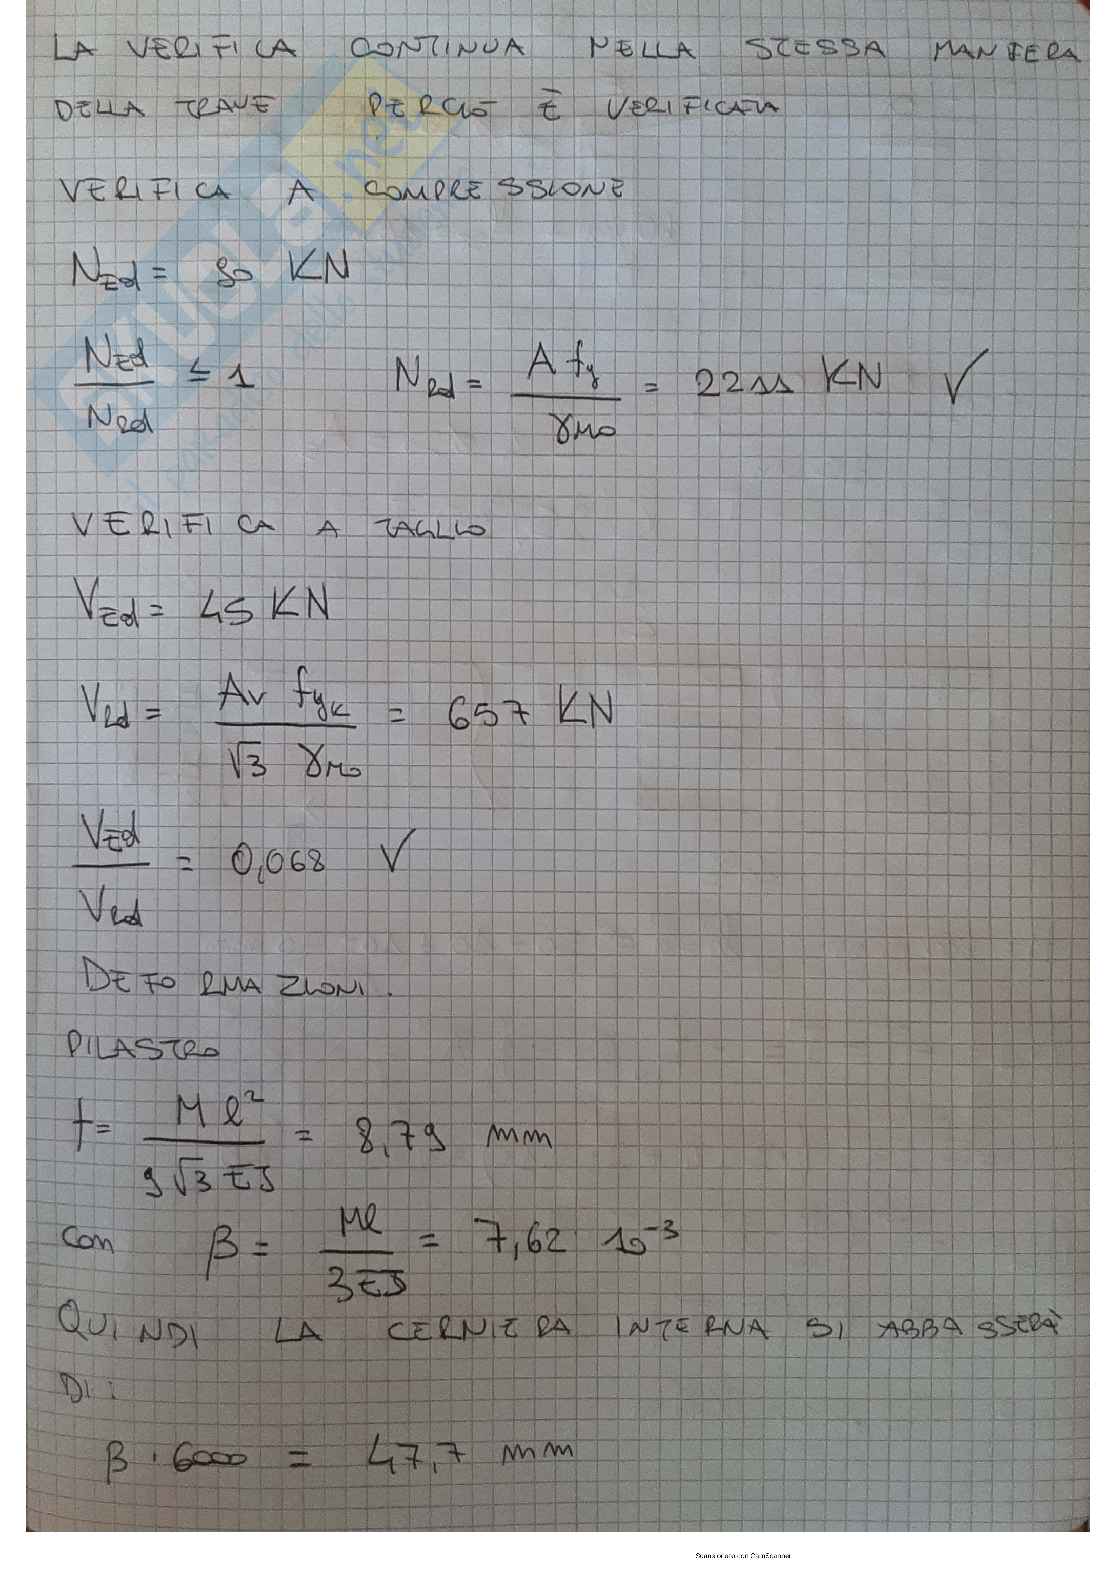 LA VERIFICA CONTINUA NELLA STESSA MANIERA
DELLA TRAVE PERCIÒ È VERIFICATA
VERIFICA A COMPRESSIONE
N_Ed = 90 KN
N_Ed / N_Rd ≤ 1 N_Rd = A f_y / γ_M0 = 2211 KN ✓
VERIFICA A TAGLIO
V_Ed = 45 KN
V_Rd = Av f_yk / √3 γ_M0 = 657 KN
V_Ed / V_Rd = 0,068 ✓
DEFORMAZIONI.
PILASTRO
f = M l² / 9√3 EJ = 8,79 mm
con β = Ml / 3EJ = 7,62 10⁻³
QUINDI LA CERNIERA INTERNA SI ABBASSERÀ
DI:
β · 6000 = 47,7 mm
SKUOLA.net